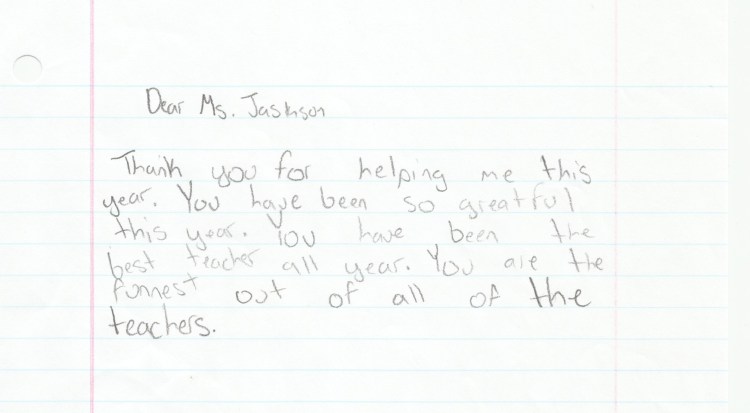 Dear Ms. Jaskson
Thank you for helping me this
year. You have been so greatful
this year. You have been the
best teacher all year. You are the
funnest out of all of the
teachers.